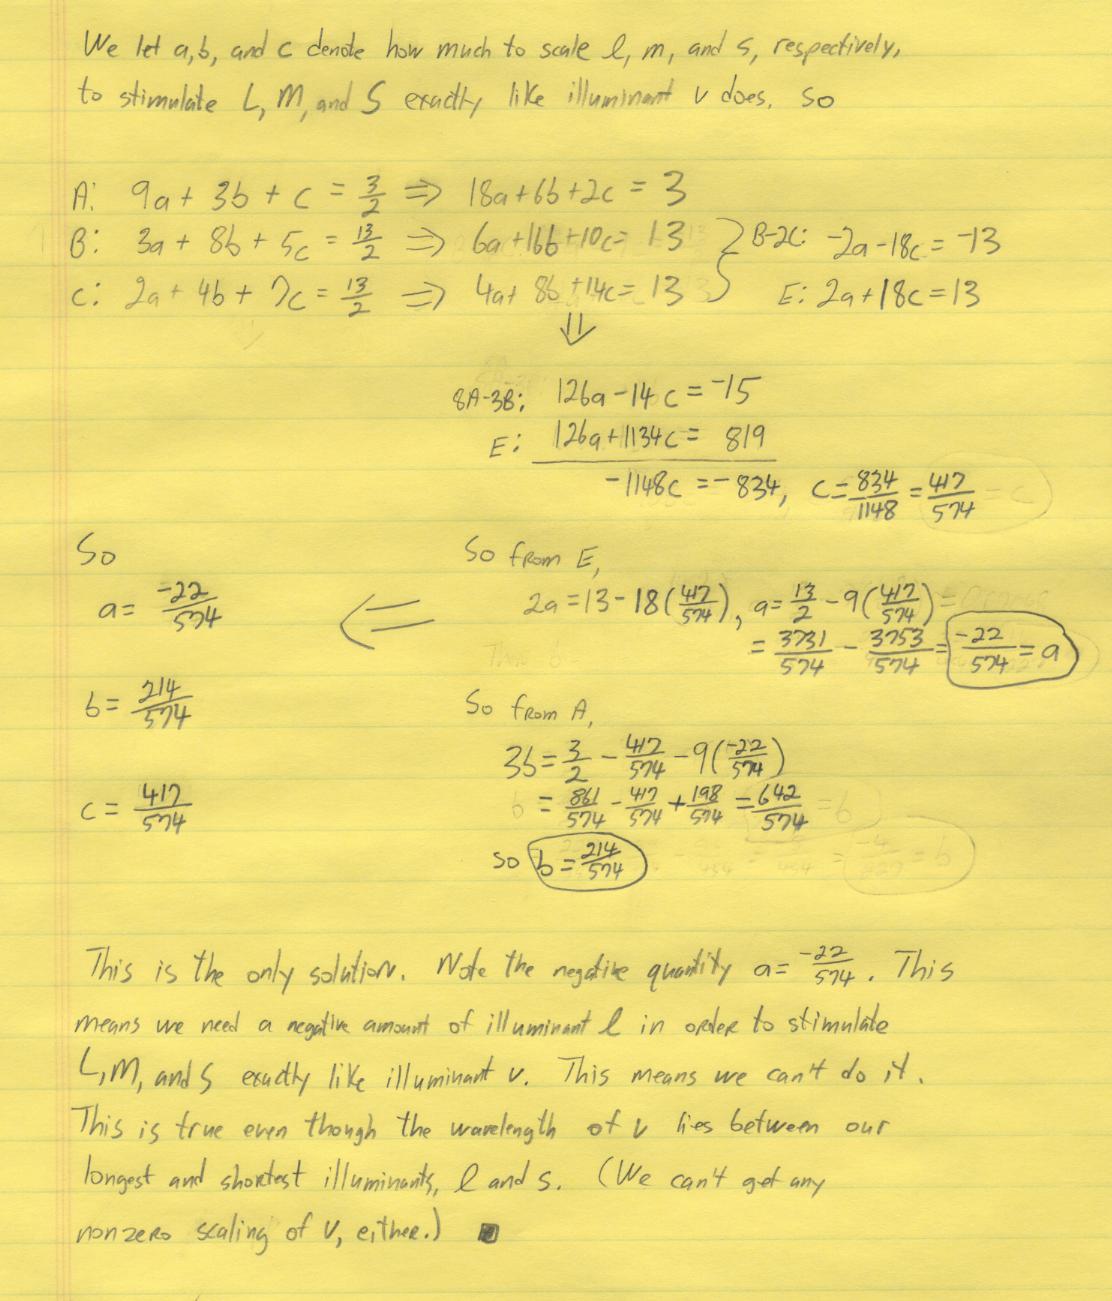 We let a, b, and c denote how much to scale l, m, and s, respectively,
to stimulate L, M, and S exactly like illuminant v does. So
A: 9a + 3b + c = 3/2 ⇒ 18a + 6b + 2c = 3
B: 3a + 8b + 5c = 13/2 ⇒ 6a + 16b + 10c = 13 B-2C: -2a - 18c = -13
C: 2a + 4b + 7c = 13/2 ⇒ 4a + 8b + 14c = 13 E: 2a + 18c = 13
⇓
8A-3B: 126a - 14c = -15
E: 126a + 1134c = 819
-1148c = -834, c = 834/1148 = 417/574 = c
So
a = -22/574
b = 214/574
c = 417/574
So from E,
2a = 13 - 18(417/574), a = 13/2 - 9(417/574) =
⇐
= 3731/574 - 3753/574 = -22/574 = a
So from A,
3b = 3/2 - 417/574 - 9(-22/574)
= 861/574 - 417/574 + 198/574 = 642/574
so b = 214/574
This is the only solution. Note the negative quantity a = -22/574. This
means we need a negative amount of illuminant l in order to stimulate
L, M, and S exactly like illuminant v. This means we can't do it.
This is true even though the wavelength of v lies between our
longest and shortest illuminants, l and s. (We can't get any
nonzero scaling of v, either.) ■